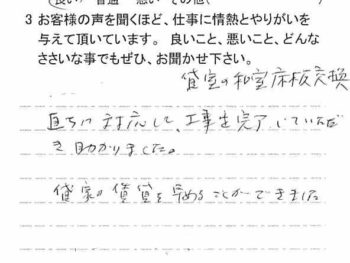 良い 普通 悪い その他( )
3 お客様の声を聞くほど、仕事に情熱とやりがいを
与えて頂いています。 良いこと、悪いこと、どんな
ささいな事でもぜひ、お聞かせ下さい。
貸室の和室床板交換
直ちに対応して、工事を完了していただ
き助かりました。
貸家の賃貸を早めることができました